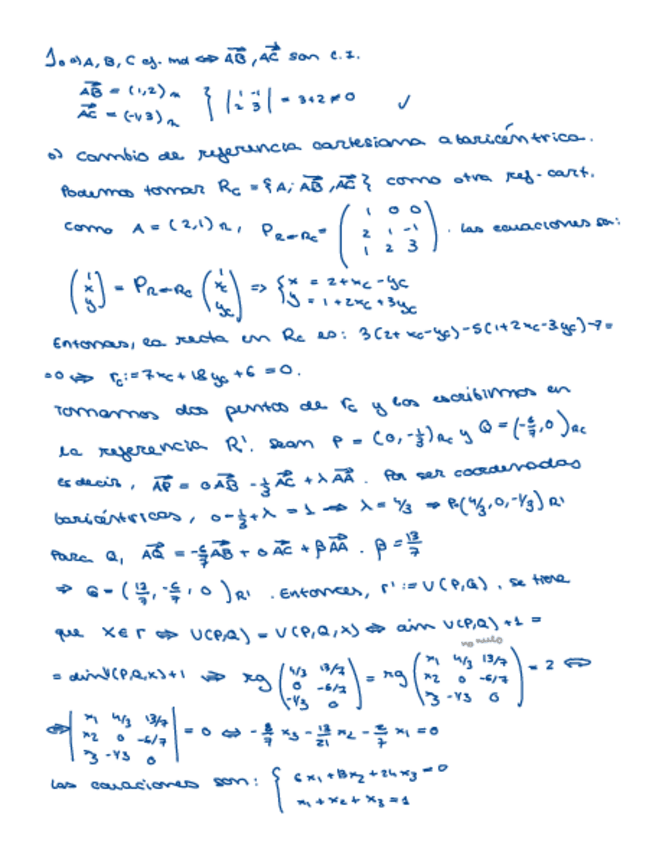 1. a) A, B, C ef. ind ⇔ \overrightarrow{AB}, \overrightarrow{AC} son l.i.
\overrightarrow{AB} = (1,2)_R
\overrightarrow{AC} = (-1,3)_R } | 1 -1 ; 2 3 | = 3+2 ≠ 0 ✓
b) Cambio de referencia cartesiana a baricéntrica.
Podemos tomar Rc = {A; \overrightarrow{AB}, \overrightarrow{AC}} como otra ref. cart.
Como A = (2,1)_R, P_{R←Rc} = ( 1 0 0 ; 2 1 -1 ; 1 2 3 ). Las ecuaciones son:
( 1 ; x ; y ) = P_{R←Rc} ( 1 ; xc ; yc ) => { x = 2+xc-yc ; y = 1+2xc+3yc
Entonces, la recta en Rc es: 3(2+xc-yc)-5(1+2xc-3yc)-7=
=0 ⇔ rc := 7xc+18yc+6 = 0.
Tomamos dos puntos de rc y los escribimos en
la referencia R'. Sean P = (0,-1/3)_{Rc} y Q = (-6/7,0)_{Rc}
es decir, \overrightarrow{AP} = 0\overrightarrow{AB} - 1/3 \overrightarrow{AC} + λ\overrightarrow{AA}. Por ser coordenadas
baricéntricas, 0-1/3+λ = 1 ⇒ λ = 4/3 ⇒ P=(4/3,0,-1/3)_{R'}
Para Q, \overrightarrow{AQ} = -6/7 \overrightarrow{AB} + 0 \overrightarrow{AC} + β\overrightarrow{AA}. β = 13/7
⇒ Q = (13/7, -6/7, 0)_{R'}. Entonces, r' := V(P,Q). Se tiene
que X∈r ⇔ V(P,Q) = V(P,Q,X) ⇔ dim V(P,Q)+1 =
no nulo
= dim V(P,Q,X)+1 ⇔ rg ( 4/3 13/7 ; 0 -6/7 ; -1/3 0 ) = rg ( x1 4/3 13/7 ; x2 0 -6/7 ; x3 -1/3 0 ) = 2 ⇔
⇔ | x1 4/3 13/7 ; x2 0 -6/7 ; x3 -1/3 0 | = 0 ⇔ -8/7 x3 - 13/21 x2 - 2/7 x1 = 0
Las ecuaciones son: { 6x1+13x2+24x3=0
x1+x2+x3=1